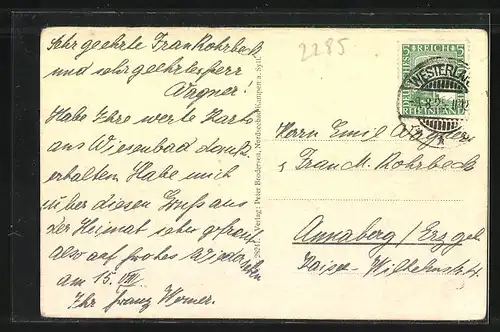 Sehr geehrte Frau Rohrbeck
und sehr geehrter Herr
Wagner!
Habe Ihre werte Karte
aus Wiesenbad dank.
erhalten. Habe mich
über diesen Gruß aus
der Heimat sehr gefreut
also auf frohes Wiedersehen
am 15. VIII.
Ihr Franz Homer.
2285
5 REICH 5
WESTERLAND
RHEINLAND
Herrn Emil Wagner
Frau M. Rohrbeck
Annaberg/Erzgeb.
Kaiser-Wilhelmstr.
Verlag: Peter Brodersen, Nordseebad Kampen a. Sylt.